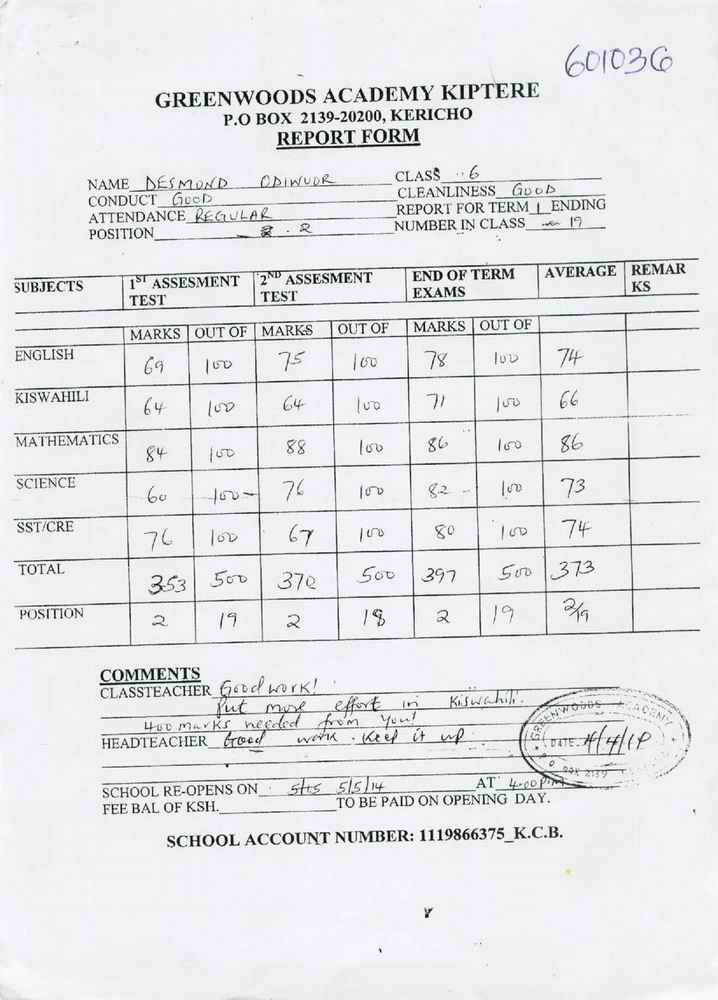 601036
GREENWOODS ACADEMY KIPTERE
P.O BOX 2139-20200, KERICHO
REPORT FORM
NAME DESMOND ODIWUOR CLASS 6
CONDUCT GOOD CLEANLINESS GOOD
ATTENDANCE REGULAR REPORT FOR TERM 1 ENDING
POSITION 2 NUMBER IN CLASS 19
SUBJECTS 1ST ASSESMENT TEST 2ND ASSESMENT TEST END OF TERM EXAMS AVERAGE REMARKS
MARKS OUT OF MARKS OUT OF MARKS OUT OF
ENGLISH 69 100 75 100 78 100 74
KISWAHILI 64 100 64 100 71 100 66
MATHEMATICS 84 100 88 100 86 100 86
SCIENCE 60 100 76 100 82 100 73
SST/CRE 76 100 67 100 80 100 74
TOTAL 353 500 370 500 397 500 373
POSITION 2 19 2 18 2 19 2/19
COMMENTS
CLASSTEACHER Good work!
Put more effort in Kiswahili.
400 marks needed from you!
HEADTEACHER Good work. Keep it up
GREENWOODS ACADEMY
DATE
BOX 2139
SCHOOL RE-OPENS ON 5/5/14 AT 4:00 P.M
FEE BAL OF KSH. TO BE PAID ON OPENING DAY.
SCHOOL ACCOUNT NUMBER: 1119866375_K.C.B.